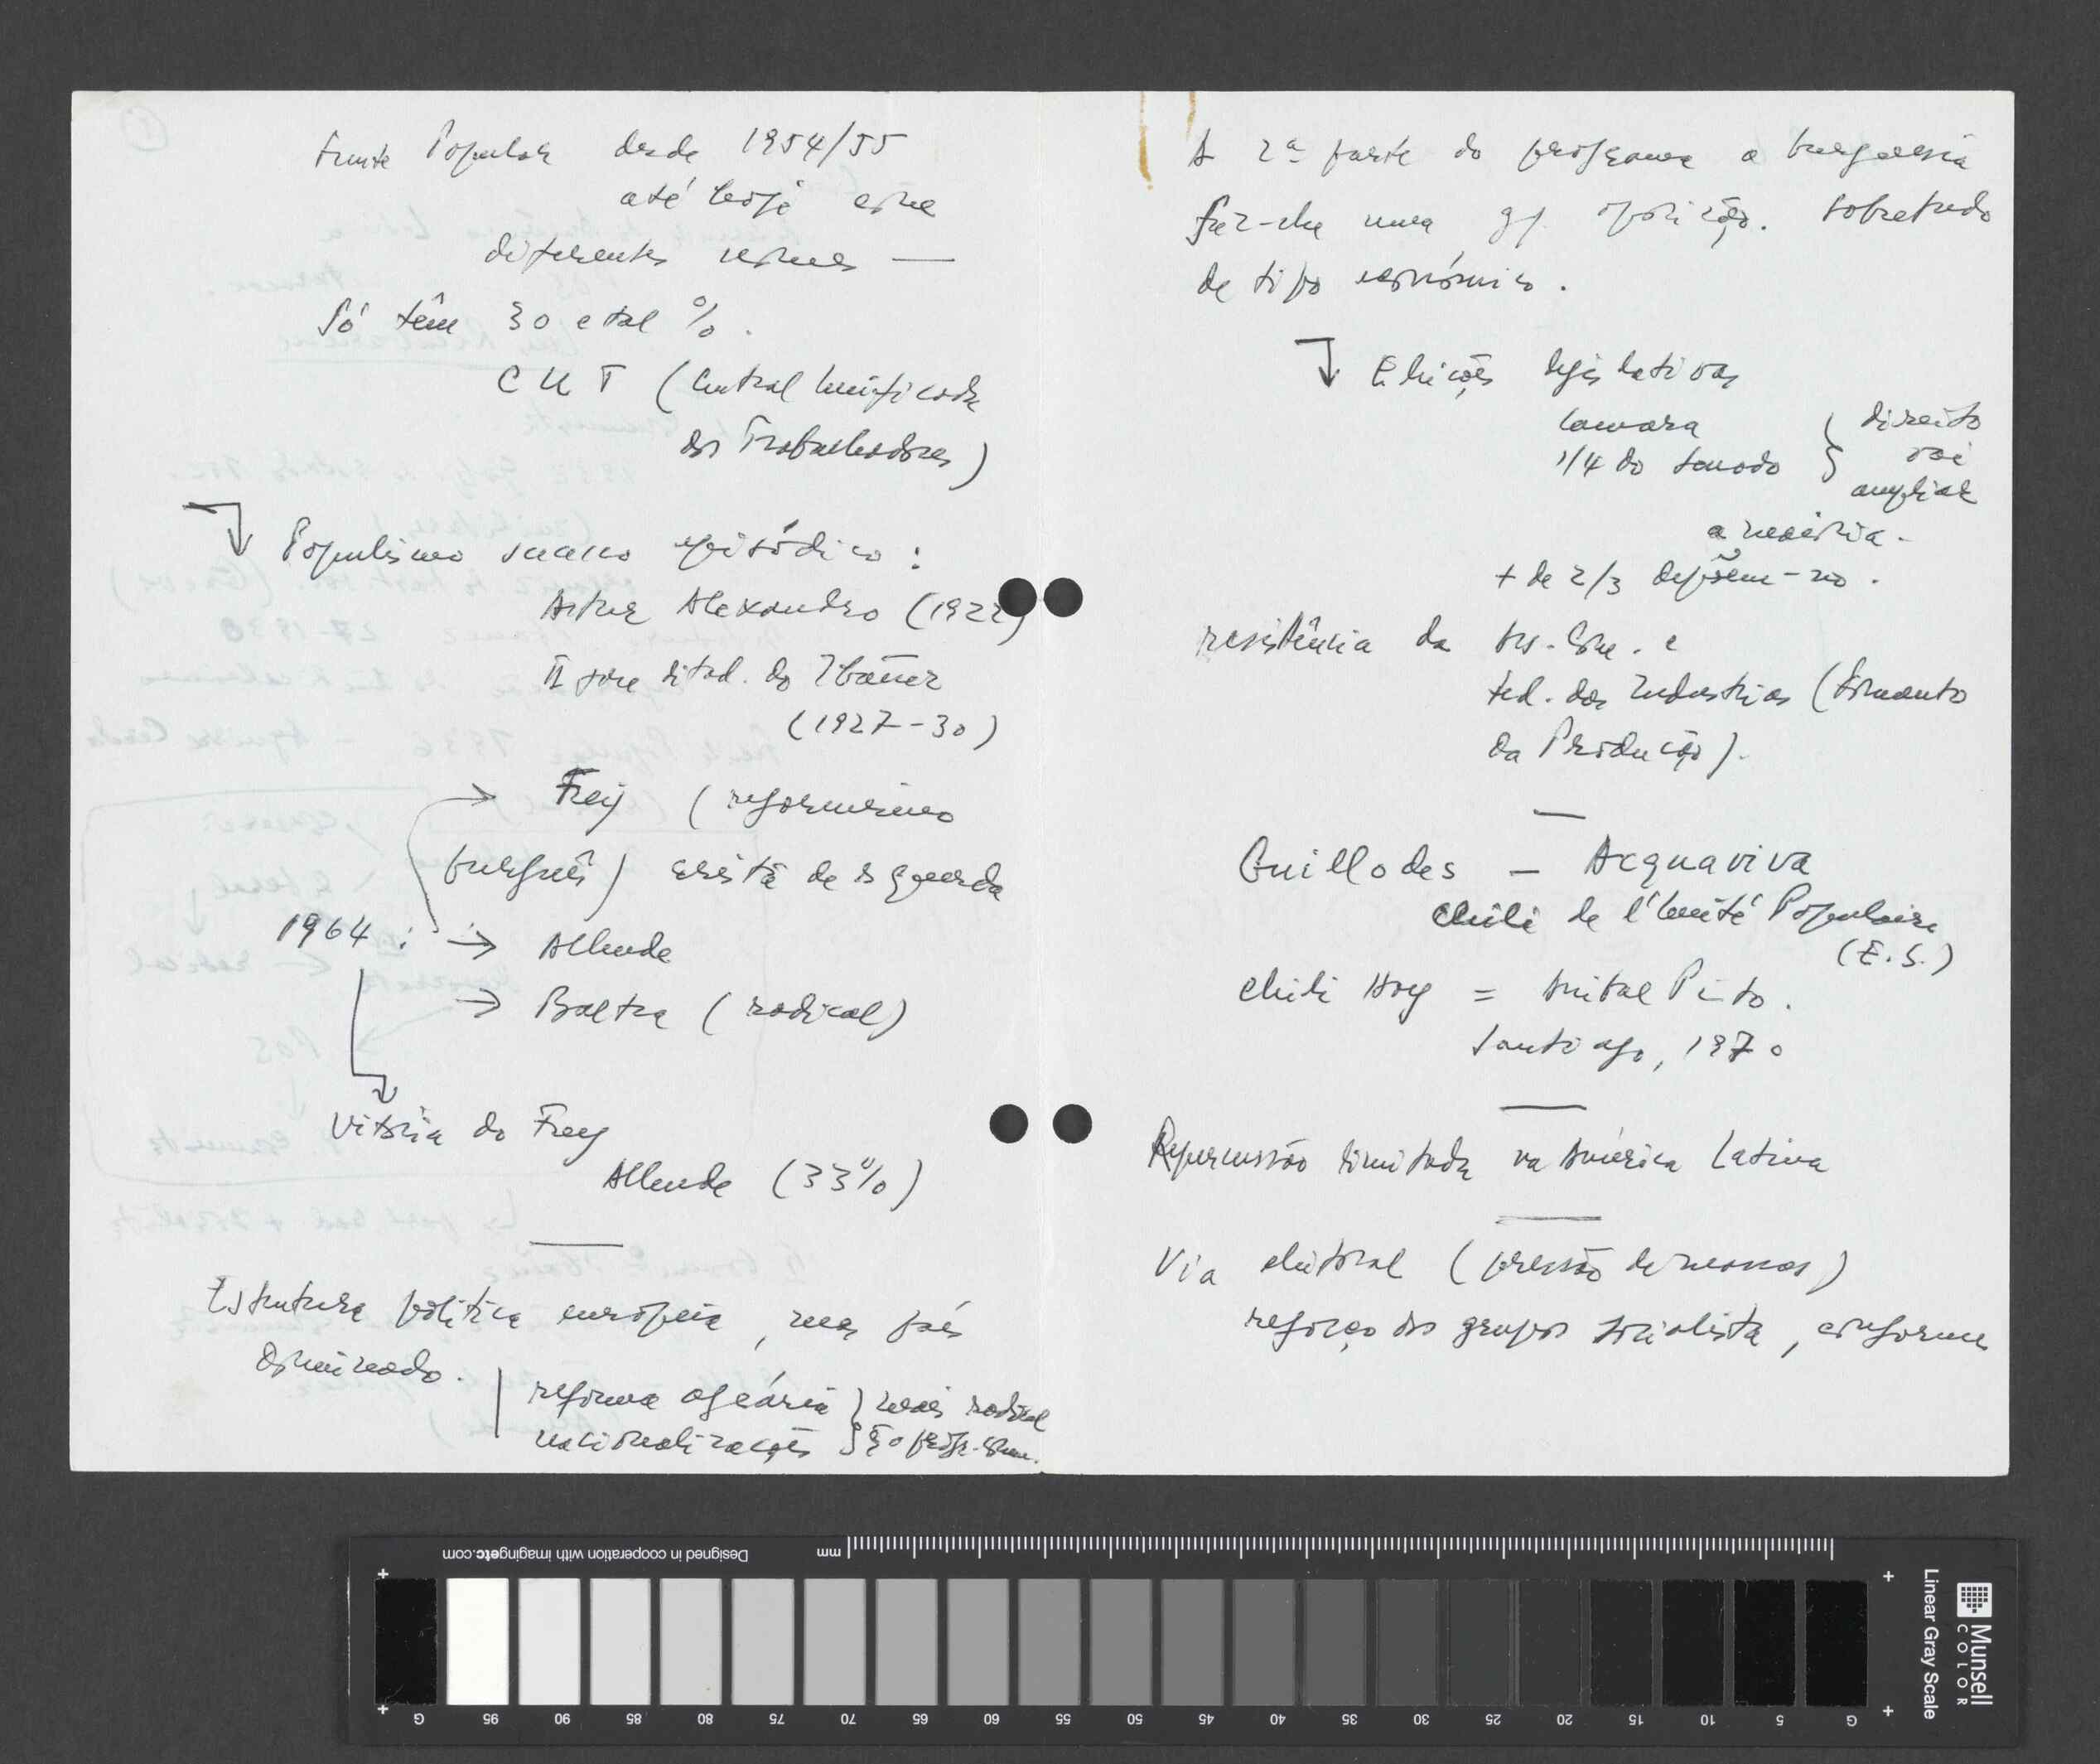 Frente Popular desde 1954/55
até hoje com
diferentes nomes —
Só têm 30 e tal %.
CUT (Central Unificada
dos Trabalhadores)
Populismo menos episódico :
Artur Alexandro (1922)
II gov. ditad. do Ibañez
(1927-30)
→ Frey (reformismo
burguês) cristã de esquerda
1964 : → Allende
→ Baltra (radical)
Vitória do Frey
Allende (33%)
Estrutura política européia, mas país
dominado.
reforma agrária } mais radical
nacionalizações } q o progr. com.
A 2ª parte do programa a burguesia
fez-lhe uma gr. oposição. Sobretudo
de tipo económico.
Eleições legislativas
Camara } direita
1/4 do Senado } vai
ampliar
a maioria.
+ de 2/3 depõem-no.
resistência da Ass. Com. e
Fed. das Industrias (Fomento
da Produção).
Guillodes — Acquaviva
Chili de l'Unité Populaire
(E.S.)
Chili Hoy = Anibal Pinto.
Santiago, 1970
Repercussão limitada na América Latina
Via eleitoral (pressão de massas)
reforço do grupo socialista, conforme
Designed in cooperation with imagingetc.com
mm
Linear Gray Scale
Munsell
COLOR
G 95 90 85 80 75 70 65 60 55 50 45 40 35 30 25 20 15 10 5 G